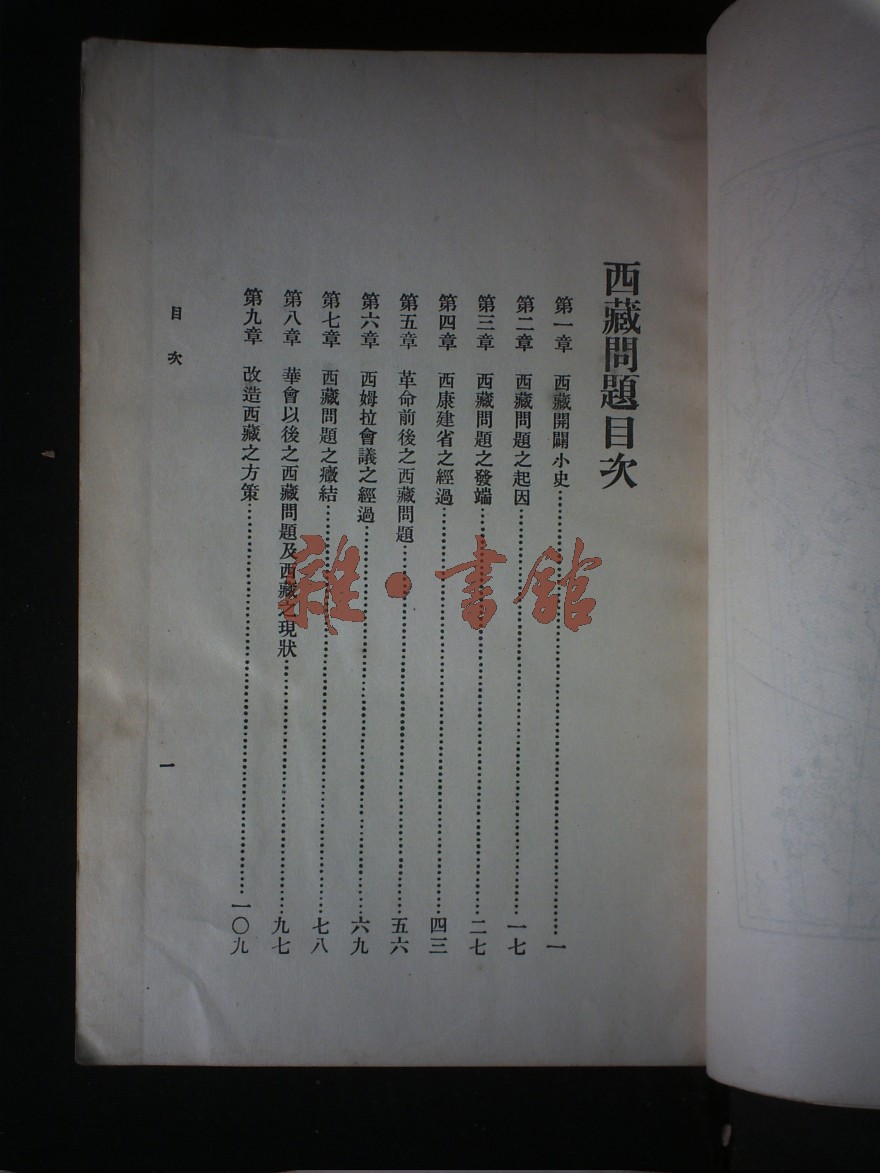 西藏問題目次
第一章　西藏開闢小史……一
第二章　西藏問題之起因……一七
第三章　西藏問題之發端……二七
第四章　西康建省之經過……四三
第五章　革命前後之西藏問題……五六
第六章　西姆拉會議之經過……六九
第七章　西藏問題之癥結……七八
第八章　華會以後之西藏問題及西藏之現狀……九七
第九章　改造西藏之方策……一〇九
目次
一
雜·書館